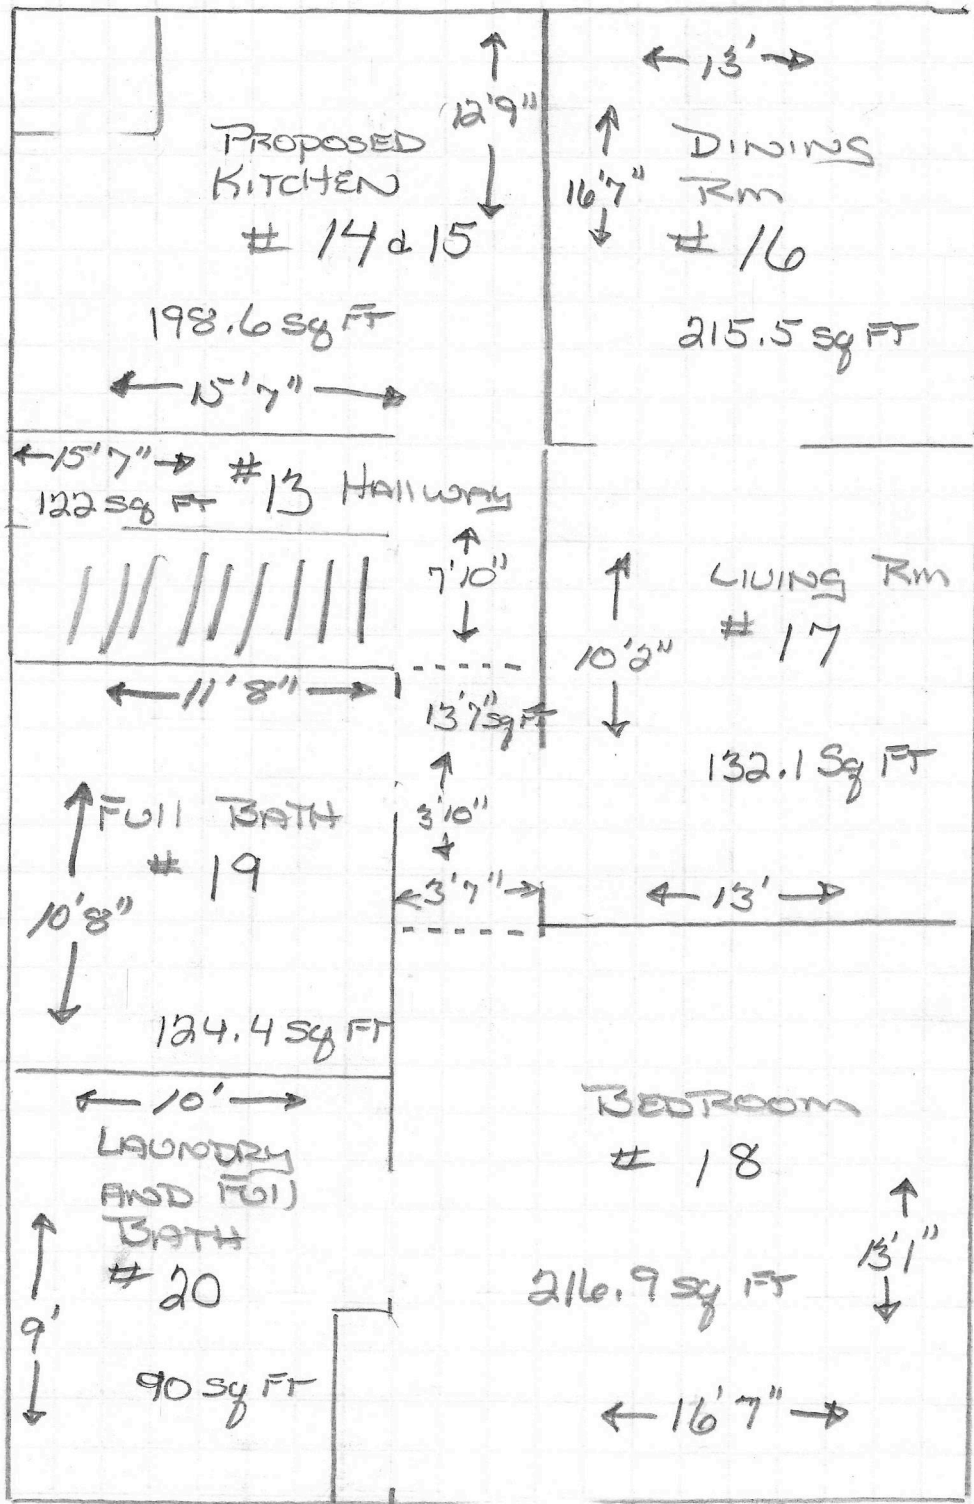 12'9"
PROPOSED
KITCHEN
# 14 & 15
198.6 Sq FT
15'7"
13'
16'7"
DINING
Rm
# 16
215.5 Sq FT
15'7" # 13 HAllWAY
122 Sq FT
7'10"
11'8"
13'7" Sq FT
3'10"
3'7"
LIVING Rm
# 17
10'2"
132.1 Sq FT
13'
FUll BATH
# 19
10'8"
124.4 Sq FT
10'
LAUNDRY
AND FUll
BATH
# 20
9'
90 Sq FT
BEDROOM
# 18
13'1"
216.9 Sq FT
16'7"